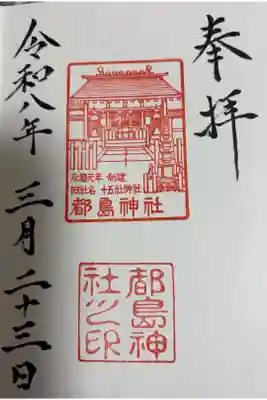 奉拝
永暦元年 創建
旧社名 十五社神社
都島神社
都島神社之印
令和八年 三月 二十三日